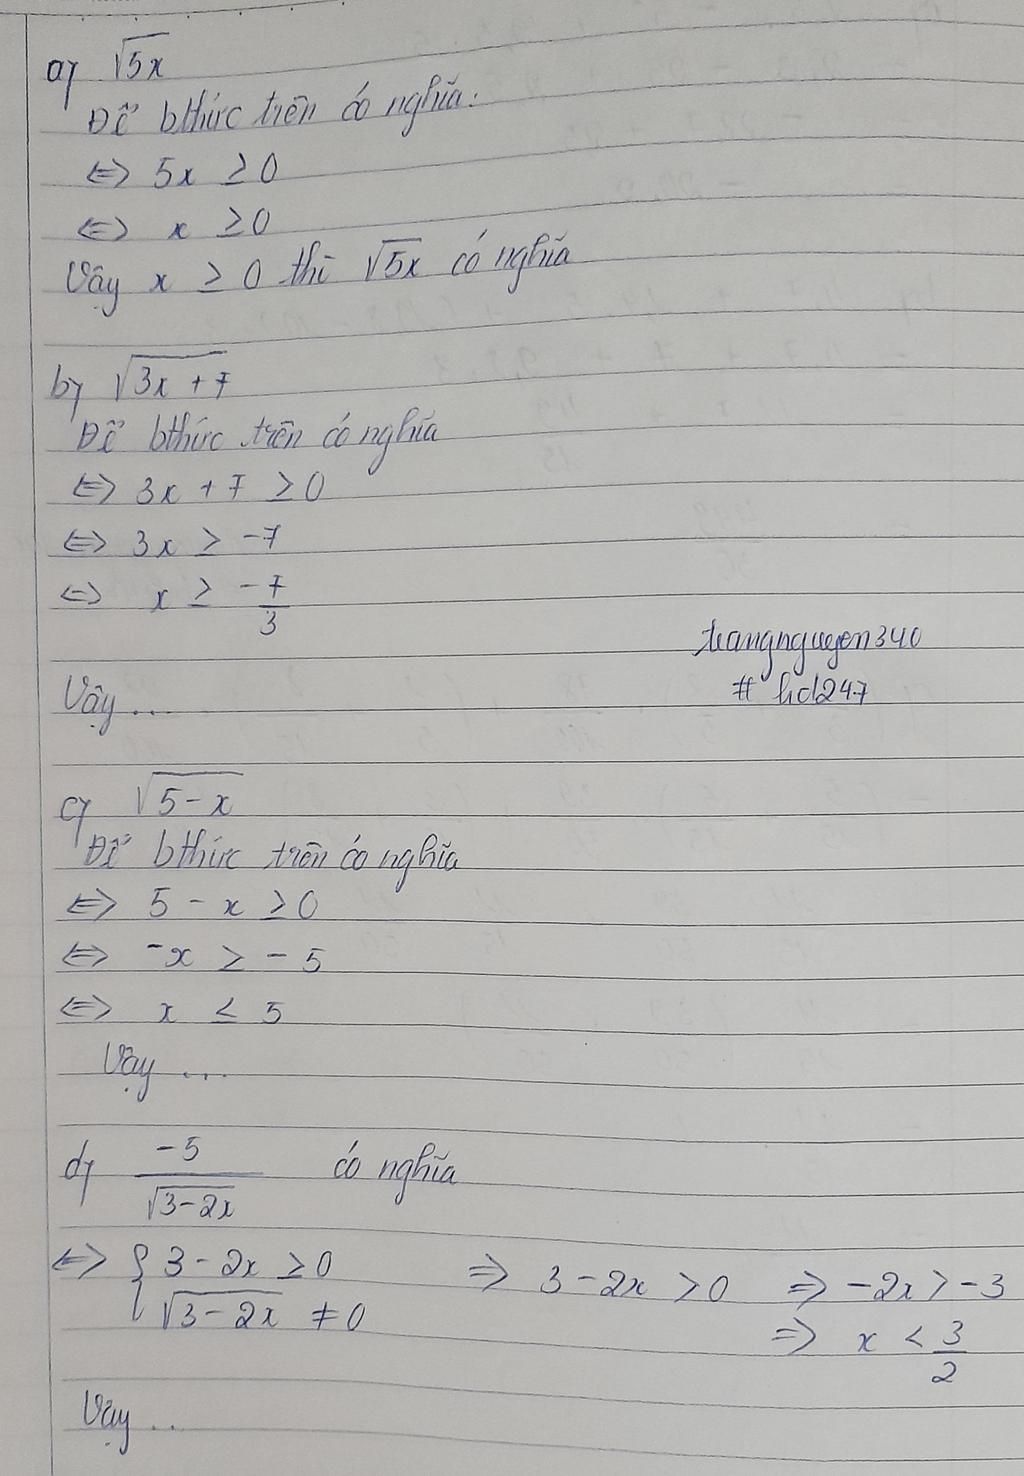 a) √5x
Để bthức trên có nghĩa:
⇔ 5x ≥ 0
⇔ x ≥ 0
Vậy x ≥ 0 thì √5x có nghĩa
b) √3x + 7
Để bthức trên có nghĩa
⇔ 3x + 7 ≥ 0
⇔ 3x ≥ -7
⇔ x ≥ -7/3
trangnguyen340
# hd247
Vậy ...
c) √5 - x
Để bthức trên có nghĩa
⇔ 5 - x ≥ 0
⇔ -x ≥ -5
⇔ x ≤ 5
Vậy ...
d) -5/√3-2x có nghĩa
⇔ { 3 - 2x ≥ 0 ⇒ 3 - 2x > 0 ⇒ -2x > -3
√3 - 2x ≠ 0 ⇒ x < 3/2
Vậy ..